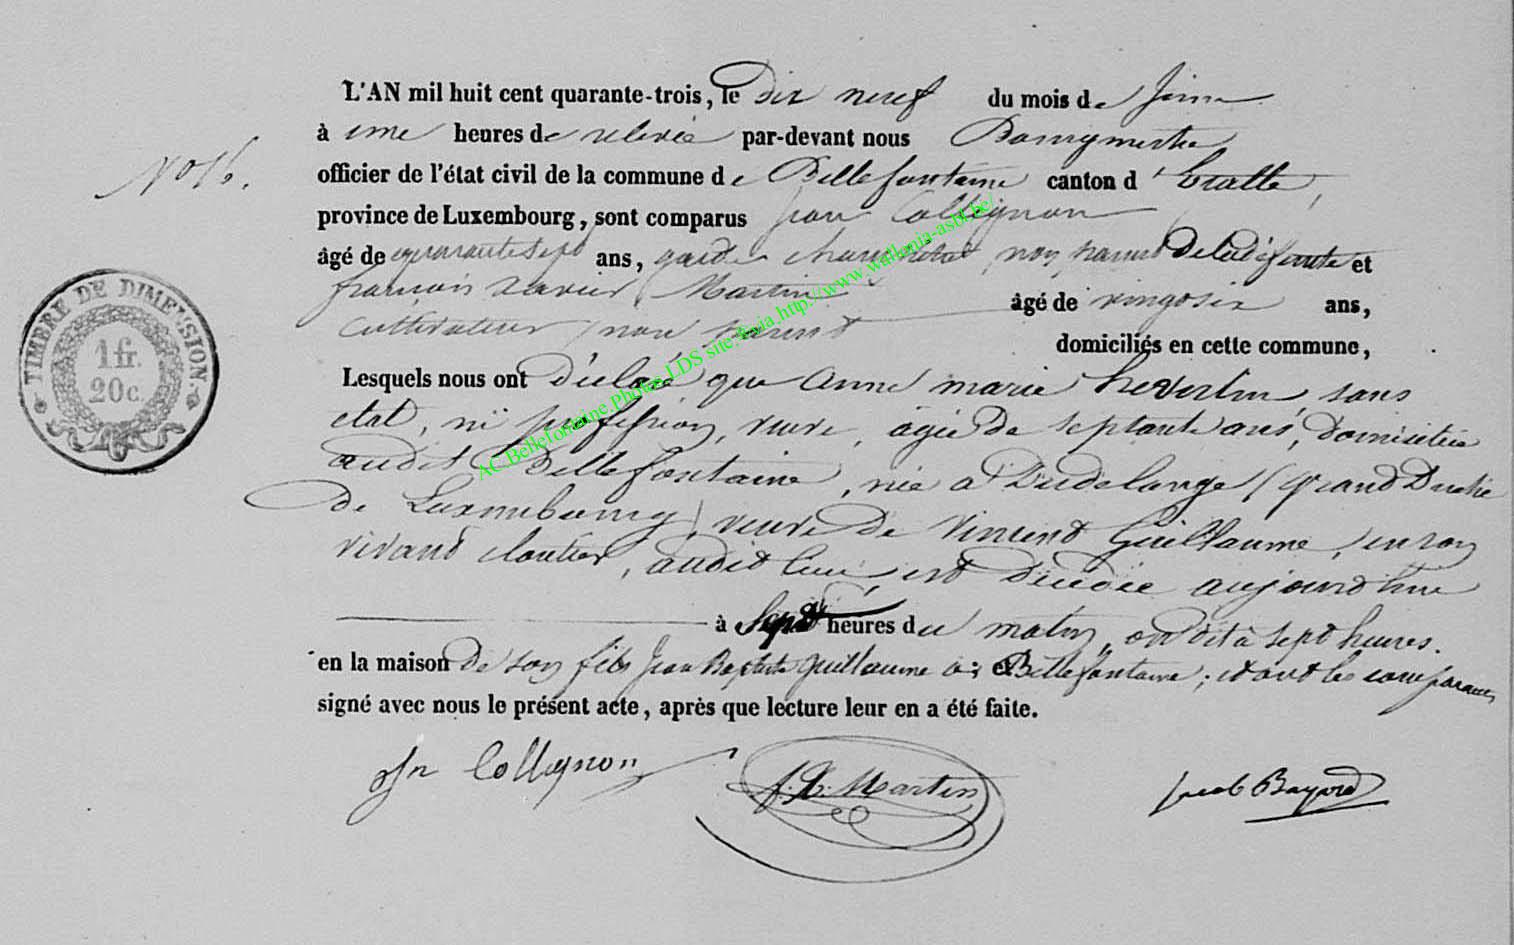 L'AN mil huit cent quarante-trois, le dix neuf du mois de Juin
à une heures de relevée par-devant nous Bourgmestre
N° 16.
officier de l'état civil de la commune de Bellefontaine canton d'Etalle,
province de Luxembourg, sont comparus Jean Collignon
âgé de quarante sept ans, garde champêtre, non parent de la défunte et
françois Xavier Martin âgé de ans,
cultivateur, non parent
domiciliés en cette commune,
Lesquels nous ont déclaré que Anne marie sans
état, ni profession, veuve, agée de septante ans, domiciliée
audit Bellefontaine, née à Dudelange (Grand Duché
de Luxembourg) veuve de Vincent Guillaume, en son
vivant cloutier, audit lieu, est décédée aujourd'hui
à Sept heures du matin, on dit à sept heures.
en la maison de son fils Jean Baptiste Guillaume à Bellefontaine; et ont les comparants
signé avec nous le présent acte, après que lecture leur en a été faite.
Jn Collignon
f. X. Martin
Jacob Bayard
TIMBRE DE DIMENSION.
1 fr.
20 c.
AC.Bellefontaine.Photos.LDS site: http://www.wallonia-asbl.be/